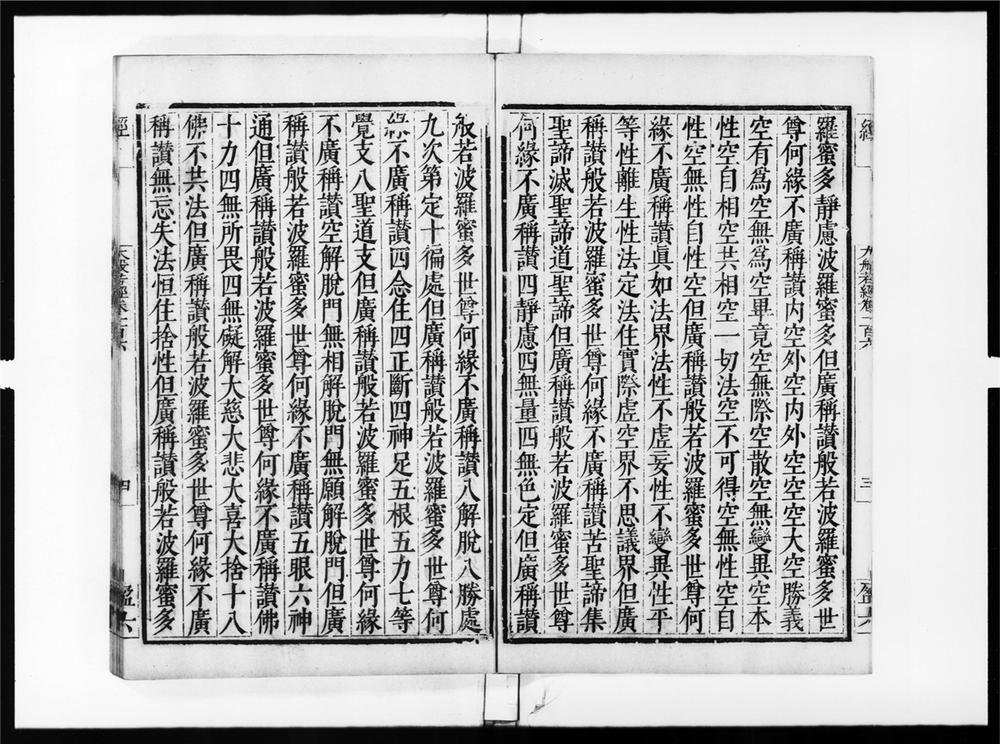 羅蜜多靜慮波羅蜜多但廣稱讃般若波羅蜜多世
尊何緣不廣稱讃内空外空内外空空空大空勝義
空有爲空無爲空畢竟空無際空散空無變異空本
性空自相空共相空一切法空不可得空無性空自
性空無性自性空但廣稱讃般若波羅蜜多世尊何
緣不廣稱讃眞如法界法性不虛妄性不變異性平
等性離生性法定法住實際虛空界不思議界但廣
稱讃般若波羅蜜多世尊何緣不廣稱讃苦聖諦集
聖諦滅聖諦道聖諦但廣稱讃般若波羅蜜多世尊
何緣不廣稱讃四靜慮四無量四無色定但廣稱讃
般若波羅蜜多世尊何緣不廣稱讃八解脫八勝處
九次第定十徧處但廣稱讃般若波羅蜜多世尊何
緣不廣稱讃四念住四正斷四神足五根五力七等
覺支八聖道支但廣稱讃般若波羅蜜多世尊何緣
不廣稱讃空解脫門無相解脫門無願解脫門但廣
稱讃般若波羅蜜多世尊何緣不廣稱讃五眼六神
通但廣稱讃般若波羅蜜多世尊何緣不廣稱讃佛
十力四無所畏四無礙解大慈大悲大喜大捨十八
佛不共法但廣稱讃般若波羅蜜多世尊何緣不廣
稱讃無忘失法恒住捨性但廣稱讃般若波羅蜜多
經 大般若經卷一百六 四 盈六